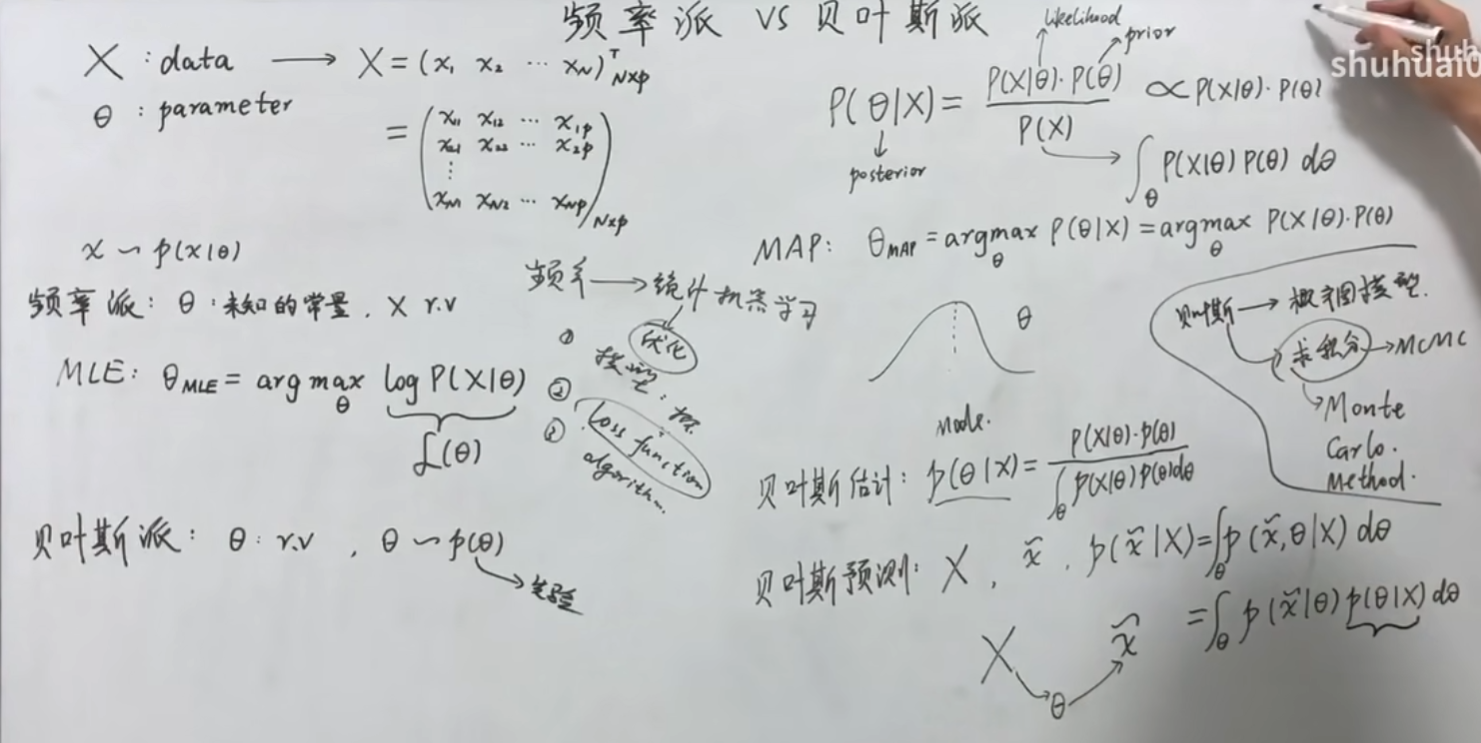 频率派 VS 贝叶斯派
X : data → X = (x₁ x₂ ⋯ x_N)ᵀ_{N×p}
θ : parameter
= (x₁₁ x₁₂ ⋯ x₁p
x₂₁ x₂₂ ⋯ x₂p
⋮
x_N1 x_N2 ⋯ x_Np)_{N×p}
x ∼ p(x|θ)
频率派: θ:未知的常量, X r.v
MLE: θ_MLE = arg max_θ log P(X|θ)
ℒ(θ)
贝叶斯派: θ: r.v , θ ∼ p(θ)
→ 先验
频率 → 统计机器学习
优化
① 模型:
②
Loss function
③ algorithm.
likelihood
prior
P(θ|X) = P(X|θ)·P(θ) / P(X) ∝ P(X|θ)·P(θ)
posterior
∫_θ P(X|θ) P(θ) dθ
MAP: θ_MAP = argmax_θ P(θ|X) = argmax_θ P(X|θ)·P(θ)
θ
Mode.
贝叶斯 → 概率图模型.
求积分 → MCMC
Monte
Carlo.
Method.
贝叶斯估计: p(θ|X) = P(X|θ)·p(θ) / ∫_θ p(X|θ)p(θ)dθ
贝叶斯预测: X , x̃ , p(x̃|X) = ∫_θ p(x̃,θ|X) dθ
= ∫_θ p(x̃|θ) p(θ|X) dθ
X → θ → x̃
shuhuai0